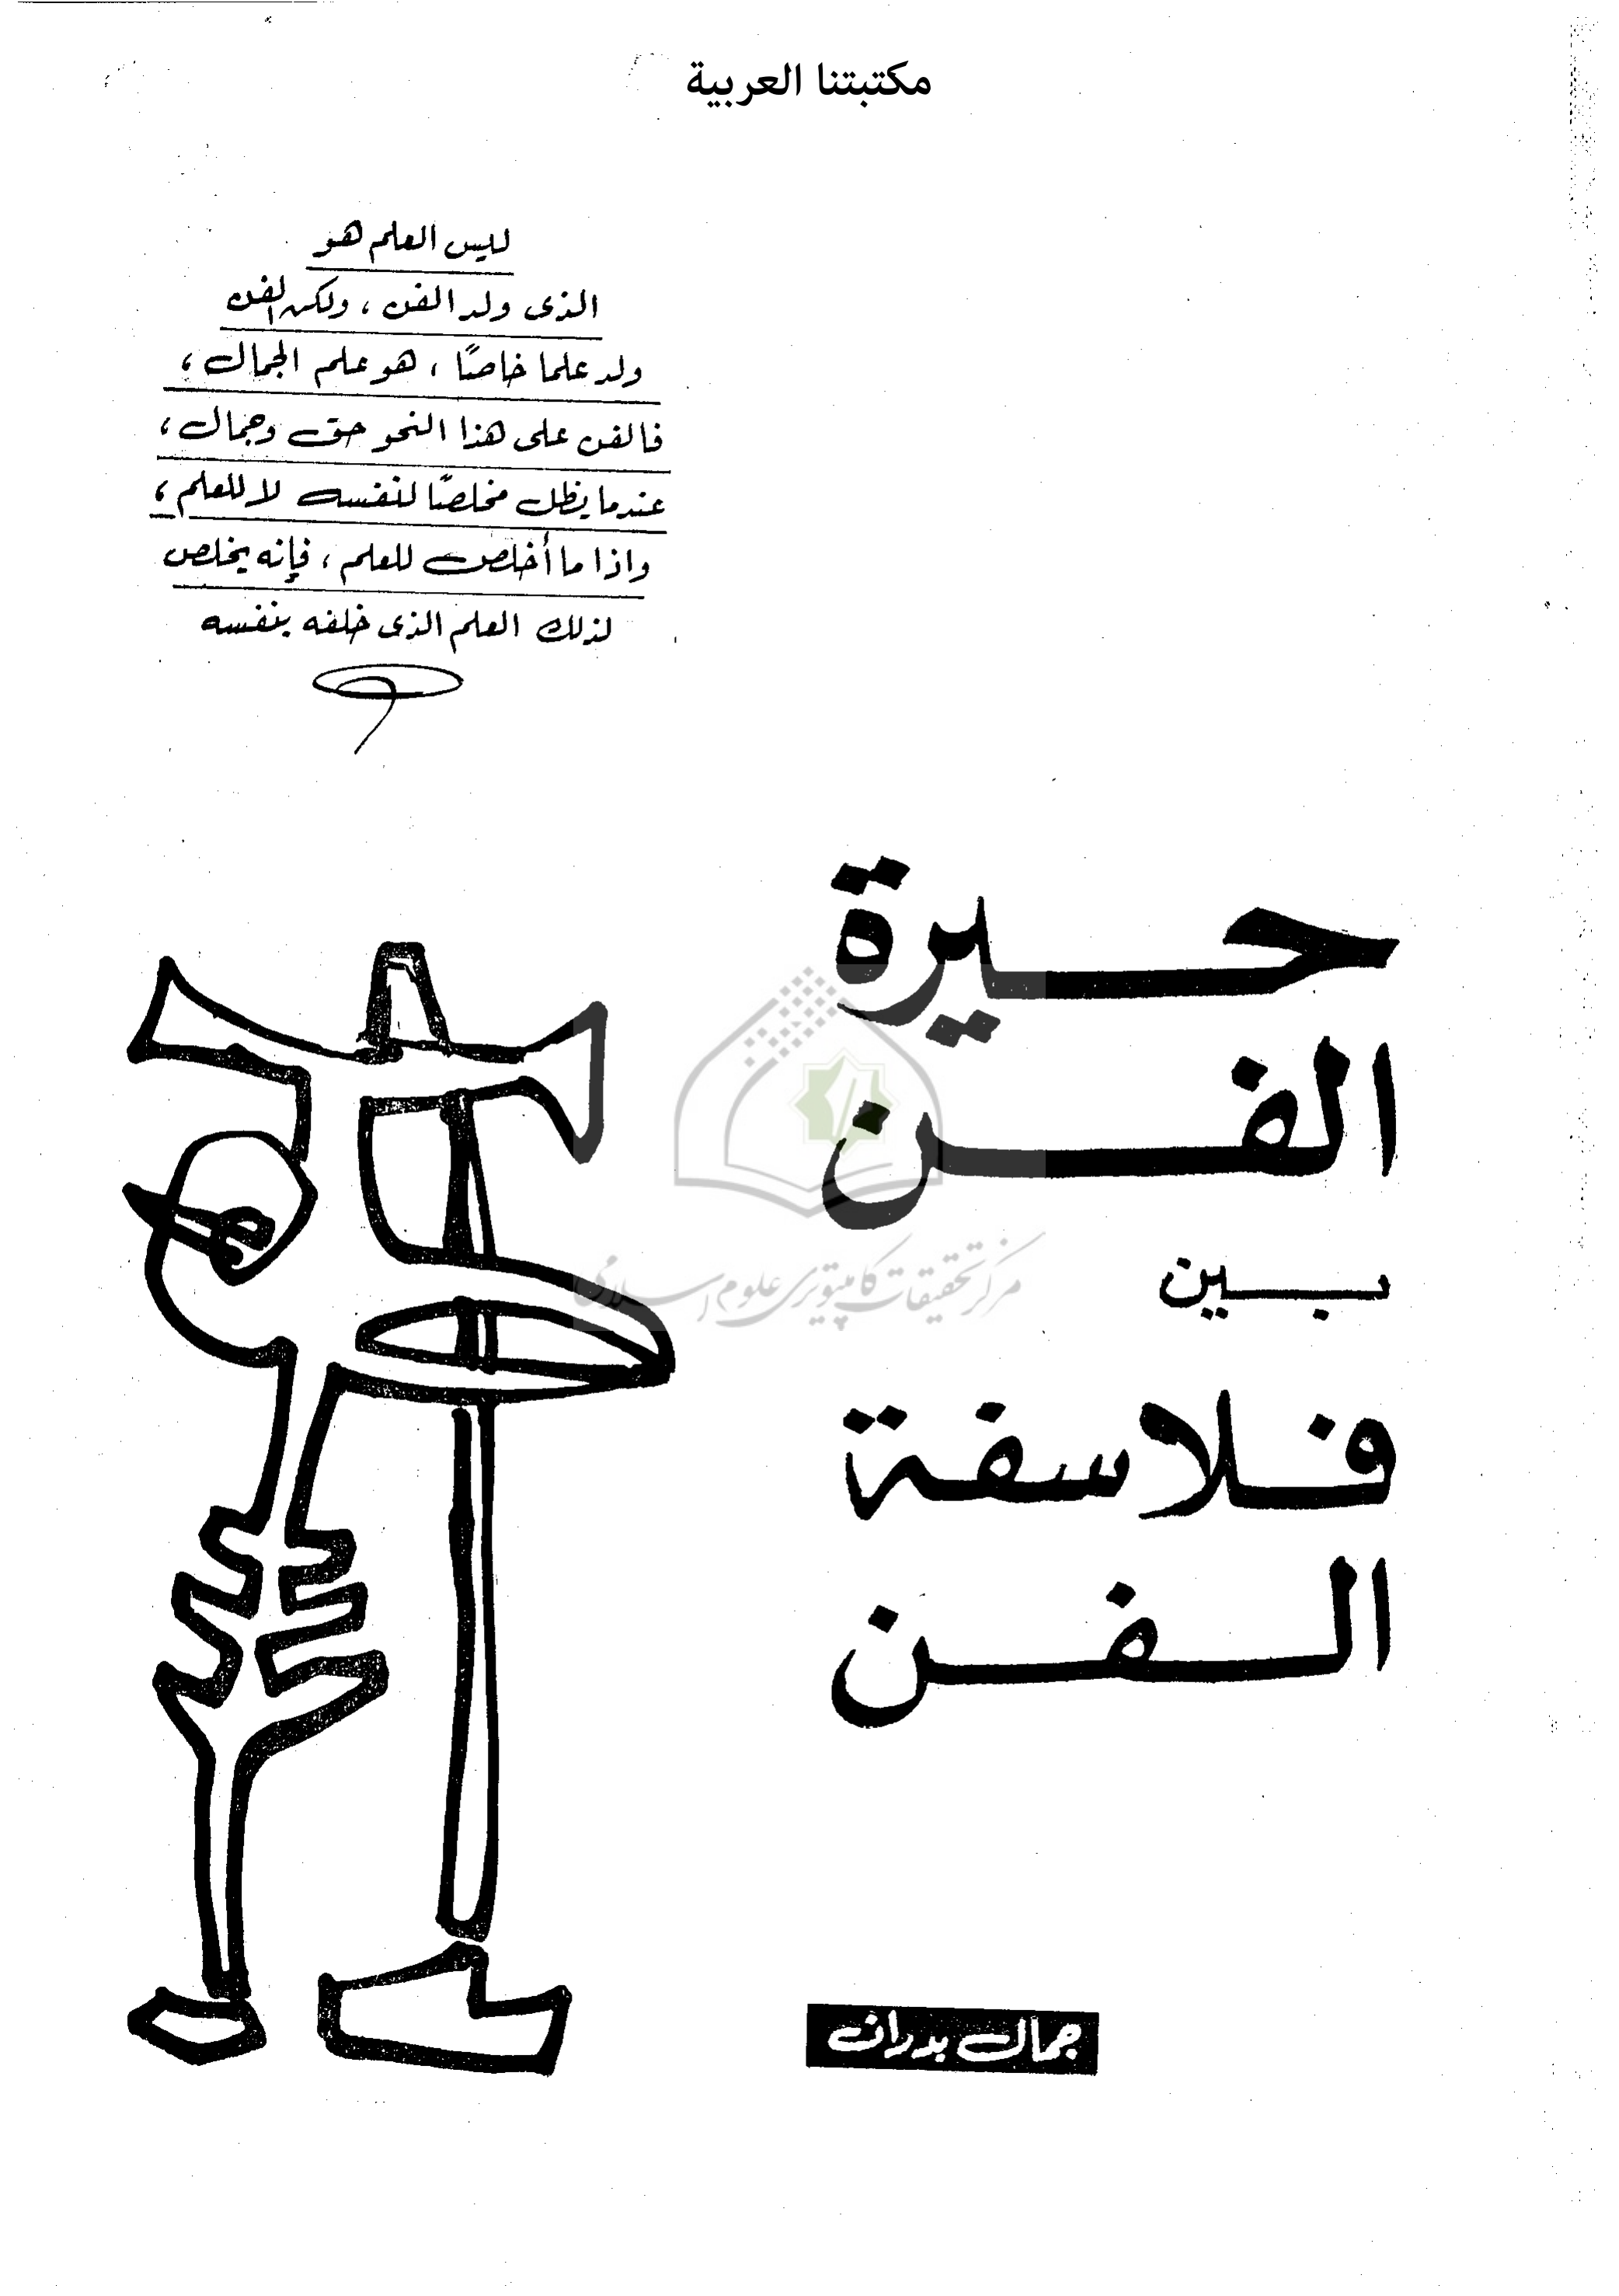 مكتبتنا العربية
ليس العلم هو
الذى ولد الفن ، ولكن الفن
ولد علما خاصًا ، هو علم الجمال ،
فالفن على هذا النحو حق وجمال ،
عندما يظل مخلصًا لنفسه لا للعلم ،
واذا ما أخلص للعلم ، فإنه يخلص
لذلك العلم الذى خلقه بنفسه
حيرة
الفن
بين
فلاسفة
الفن
مركز تحقيقات كامپيوتری علوم اسلامی
جمال بدران